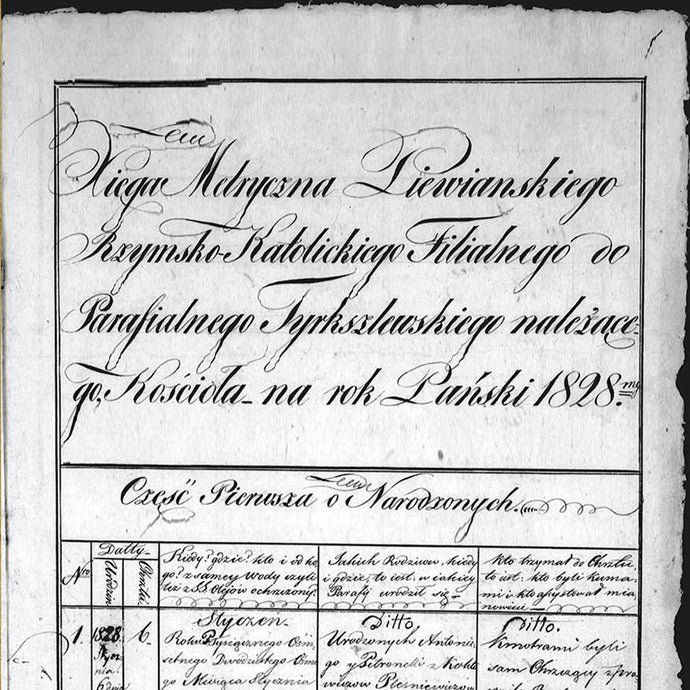 Xięga Metryczna Piewianskiego
Rzymsko-Katolickiego Filialnego do
Parafialnego Tyrkszlewskiego należące-
go, Kościoła na rok Pański 1828.my
Część Pierwsza o Narodzonych.
Nro
Datty
Urodzin
Chrztu
Kiedy? gdzie? kto i od ko
go? z samey Wody czyli
też z S. Olejów ochrzcony?
Jakich Rodziców, kiedy
i gdzie, to iest: w iakiey
Parafij urodził się
Kto trzymał do Chrztu,
to iest: kto byli kuma-
mi i kto assystował mia
nowicie
1.
1828
6.
Styczeń.
Roku Tysiącznego Ośm
setnego Dwudziestego Osme
go Miesiąca Stycznia
Ditto.
Urodzonych Antonie
go y Petroneli z
Ditto.
Kmotrami byli
sam Chrzczący z